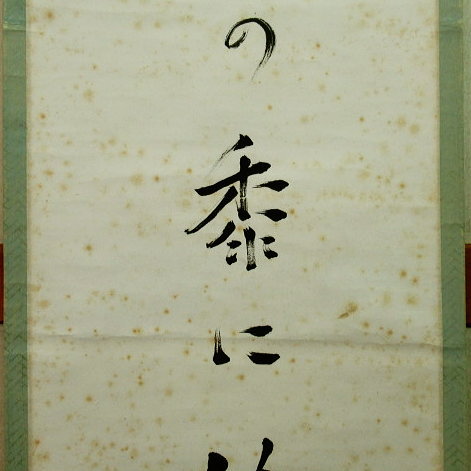 の黍に